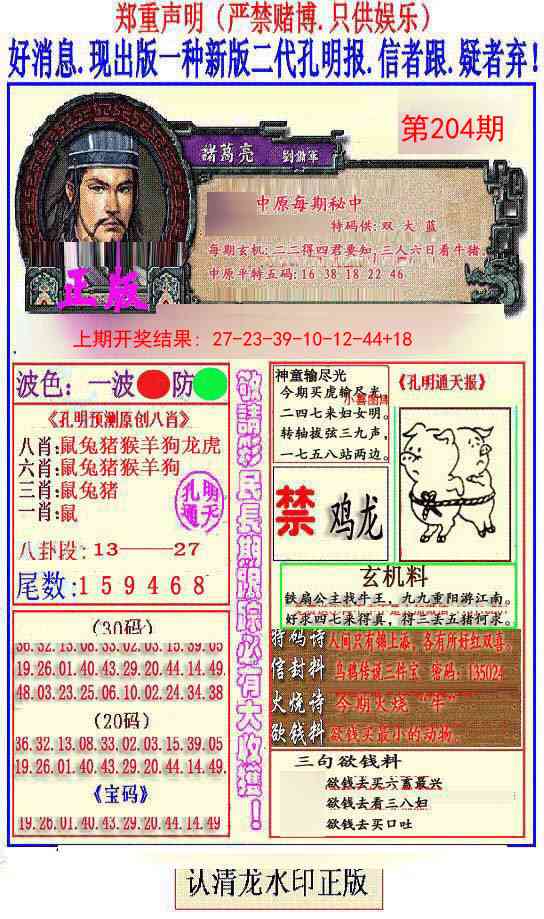 郑重声明（严禁赌博.只供娱乐）
好消息.现出版一种新版二代孔明报.信者跟.疑者弃！
第204期
諸葛亮 劉備軍
中原每期秘中
特码供:双 大 蓝
每期玄机:二二得四君要知,三人六日看牛猪.
中原平特五码:16 38 18 22 46
正版
上期开奖结果: 27-23-39-10-12-44+18
波色: 一波 防
《孔明预测原创八肖》
八肖:鼠兔猪猴羊狗龙虎
六肖:鼠兔猪猴羊狗
三肖:鼠兔猪
一肖:鼠
孔明
通天
八卦段: 13——27
尾数:159468
(30码)
36.32.13.08.33.02.03.15.39.05
19.26.01.40.43.29.20.44.14.49
48.03.23.25.06.10.02.24.34.38
(20码)
36.32.13.08.33.02.03.15.39.05
19.26.01.40.43.29.20.44.14.49.
《宝码》
19.26.01.40.43.29.20.44.14.49
敬請彩民長期跟踪必有大收獲！
神童输尽光
今期买虎输尽光
二四七来妇女明。
转轴拔弦三九声，
一七五八站两边。
《孔明通天报》
禁 鸡龙
玄机料
铁扇公主找牛王，九九重阳游江南。
好求四七来得真，得二去五猪何求。
特码诗 人间只有锦上添，各有所好红双喜。
信封料 乌鸦传说三件宝 密码：135024
火烧诗 今期火烧“牛”
欲钱料 欲钱买最小的动物。
三句欲钱料
欲钱去买六畜最兴
欲钱去看三八妇
欲钱去买口吐
认清龙水印正版